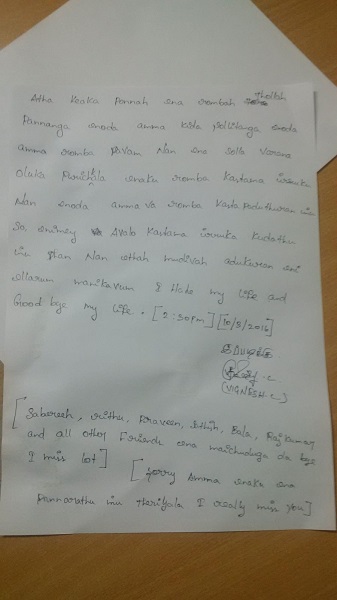 Atha keaka ponnah ena rombah thollah
Pannanga enoda amma kita pollitanga enoda
amma romba pavam Nan ena solla varana
enaku romba kastama iruku
Nan enoda amma va romba kasta paduthuran inu
So, enimey Avab kastama iruuka kudathu
inu than Nan ethah mudivah edukaran eni
ellarum manikavum I Hate my life and
Good bye my life. [2:30pm] [10/8/2016]
(VIGNESH.C)
[Sabareesh, Praveen, Bala, Rajkumar
and all other Friends ena da bye
I miss lot]
[Sorry Amma enaku ena
Pannarathu inu theriyala I really miss you]